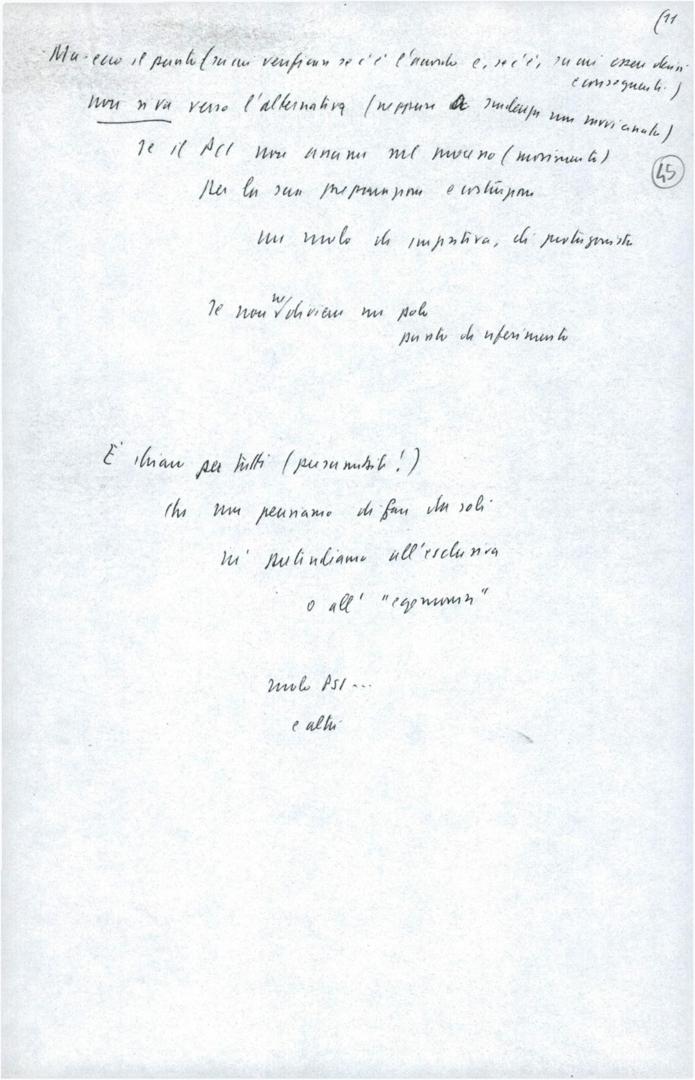 (11
Ma ecco il punto (su cui verificare se c'è l'accordo e, se c'è, su cui essere decisi
e conseguenti)
non si va verso l'alternativa (neppure a scadenza non ravvicinata)
45
se il PCI non assume nel processo (movimento)
per la sua preparazione e costruzione
un ruolo di iniziativa, di protagonista
se non ne diviene un polo
punto di riferimento
È chiaro per tutti (
che non pensiamo di fare da soli
né pretendiamo all'esclusiva
o all' "egemonia"
ruolo PSI ...
e altri